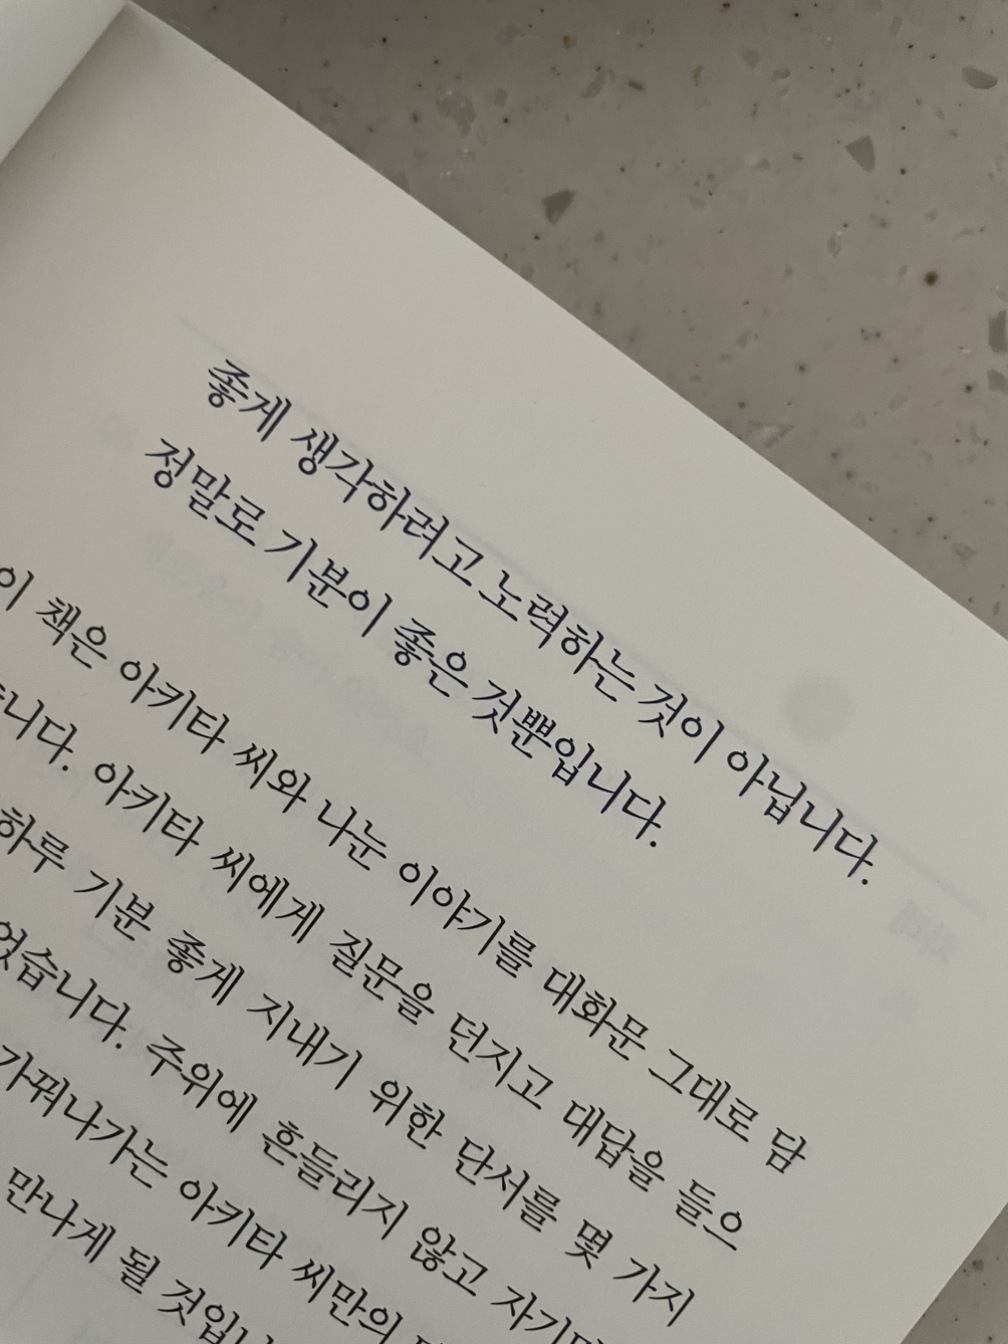 좋게 생각하려고 노력하는 것이 아닙니다.
정말로 기분이 좋은 것뿐입니다.
이 책은 아키타 씨와 나눈 이야기를 대화문 그대로 담
습니다. 아키타 씨에게 질문을 던지고 대답을 들으
하루 기분 좋게 지내기 위한 단서를 몇 가지
었습니다. 주위에 흔들리지 않고
가꿔나가는 아키타 씨만의
만나게 될